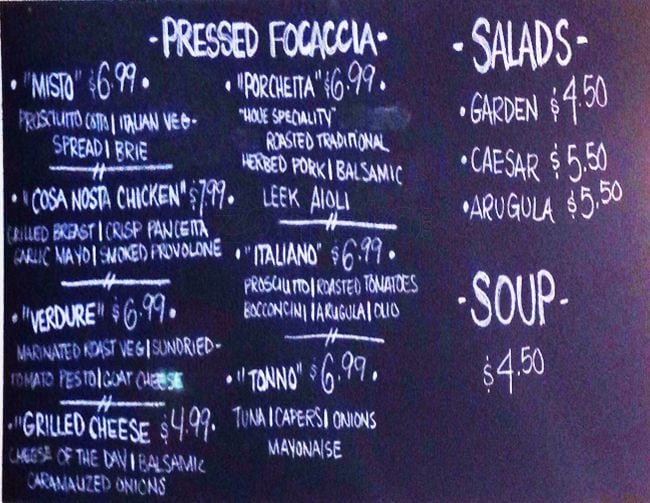 - PRESSED FOCACCIA -
• "MISTO" $6.99 •
PROSCIUTTO COTTO | ITALIAN VEG-
SPREAD | BRIE
• "COSA NOSTA CHICKEN" $7.99 •
GRILLED BREAST | CRISP PANCETTA
GARLIC MAYO | SMOKED PROVOLONE
• "VERDURE" $6.99 •
MARINATED ROAST VEG | SUNDRIED-
TOMATO PESTO | GOAT CHEESE
• "GRILLED CHEESE $4.99 •
CHEESE OF THE DAY | BALSAMIC
CARAMALIZED ONIONS
• "PORCHETTA" $6.99 •
"HOUE SPECIALITY"
ROASTED TRADITIONAL
HERBED PORK | BALSAMIC
LEEK AIOLI
• "ITALIANO" $6.99 •
PROSCIUTTO | ROASTED TOMATOES
BOCCONCINI | ARUGULA | OLIO
• "TONNO" $6.99 •
TUNA | CAPERS | ONIONS
MAYONAISE
- SALADS -
• GARDEN $4.50
• CAESAR $5.50
• ARUGULA $5.50
- SOUP -
$4.50